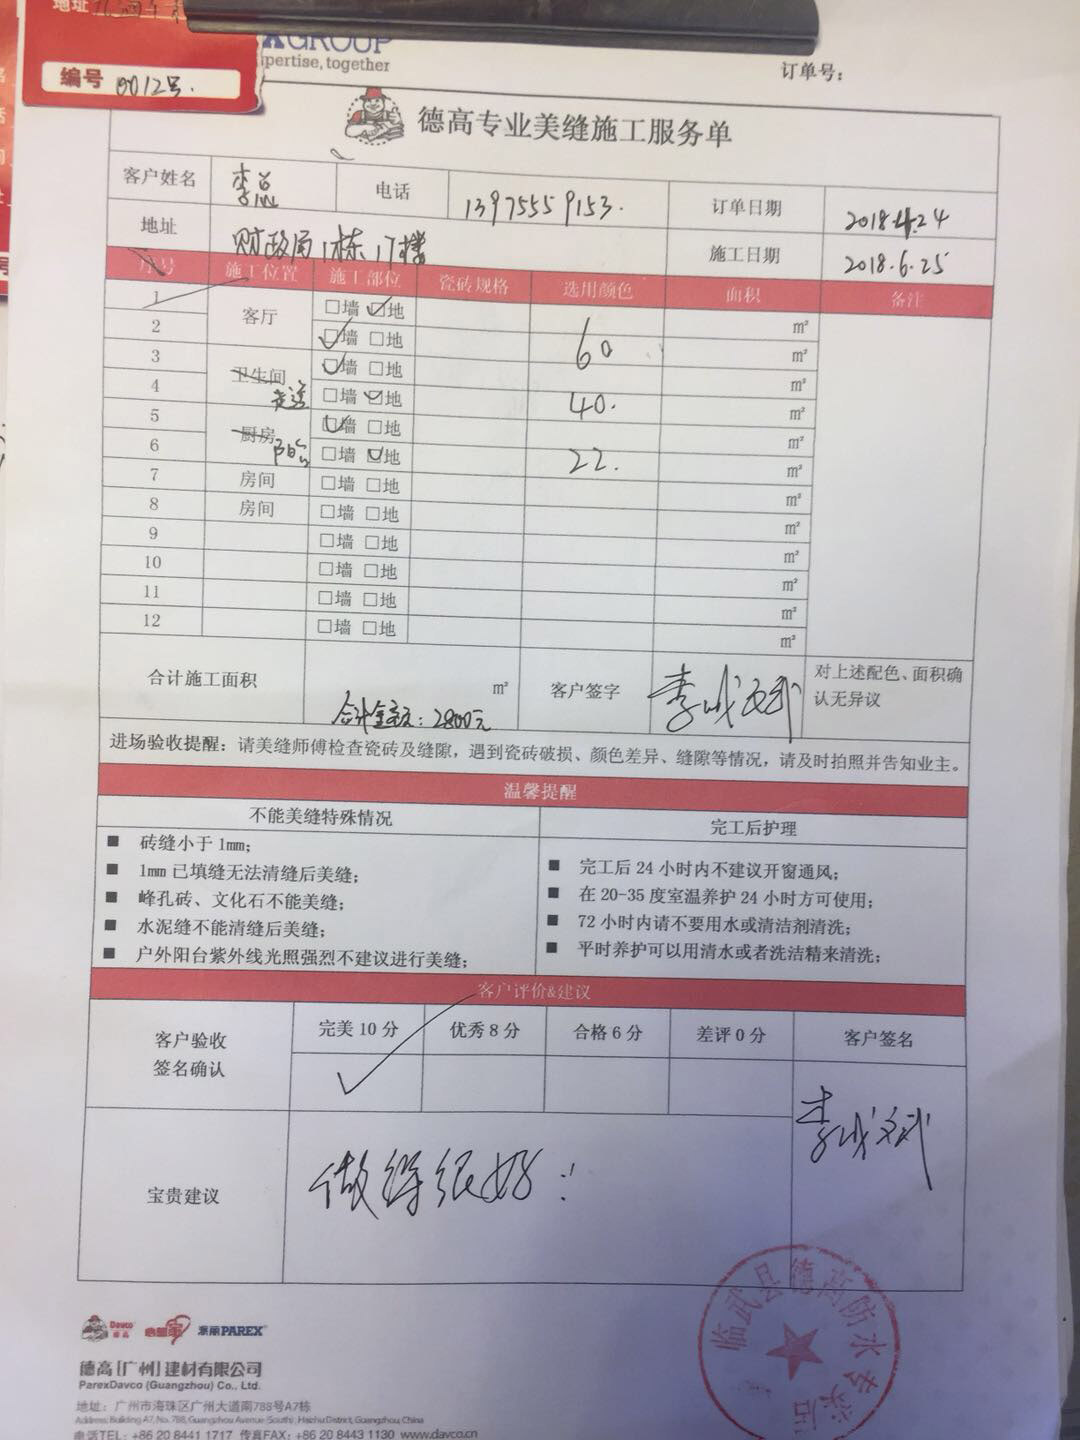 地址
编号 0012号.
GROUP
pertise, together
订单号：
德高专业美缝施工服务单
客户姓名 李总 电话 13975559153. 订单日期 2018.4.24
地址 财政局1栋17楼 施工日期 2018.6.25
序号 施工位置 施工部位 瓷砖规格 选用颜色 面积 备注
1 客厅 □墙 ☑地 m²
2 ☑墙 □地 60 m²
3 卫生间 ☑墙 □地 m²
4 走道 □墙 ☑地 40. m²
5 厨房 ☑墙 □地 m²
6 阳台 □墙 ☑地 22. m²
7 房间 □墙 □地 m²
8 房间 □墙 □地 m²
9 □墙 □地 m²
10 □墙 □地 m²
11 □墙 □地 m²
12 □墙 □地 m²
合计施工面积 m² 客户签字 对上述配色、面积确
认无异议
合计金额：2800元
进场验收提醒：请美缝师傅检查瓷砖及缝隙，遇到瓷砖破损、颜色差异、缝隙等情况，请及时拍照并告知业主。
温馨提醒
不能美缝特殊情况
■ 砖缝小于1mm；
■ 1mm已填缝无法清缝后美缝；
■ 峰孔砖、文化石不能美缝；
■ 水泥缝不能清缝后美缝；
■ 户外阳台紫外线光照强烈不建议进行美缝；
完工后护理
■ 完工后24小时内不建议开窗通风；
■ 在20-35度室温养护24小时方可使用；
■ 72小时内请不要用水或清洁剂清洗；
■ 平时养护可以用清水或者洗洁精来清洗；
客户评价&建议
客户验收
签名确认
完美10分 优秀8分 合格6分 差评0分 客户签名
宝贵建议 做得很好！
临武县德高防水专卖店
Davco 德高 派丽PAREX
德高[广州]建材有限公司
ParexDavco (Guangzhou) Co., Ltd.
地址：广州市海珠区广州大道南788号A7栋
Address: Building A7, No. 788, Guangzhou Avenue (South), Haizhu District, Guangzhou, China
电话TEL: +86 20 8441 1717 传真FAX: +86 20 8443 1130 www.davco.cn